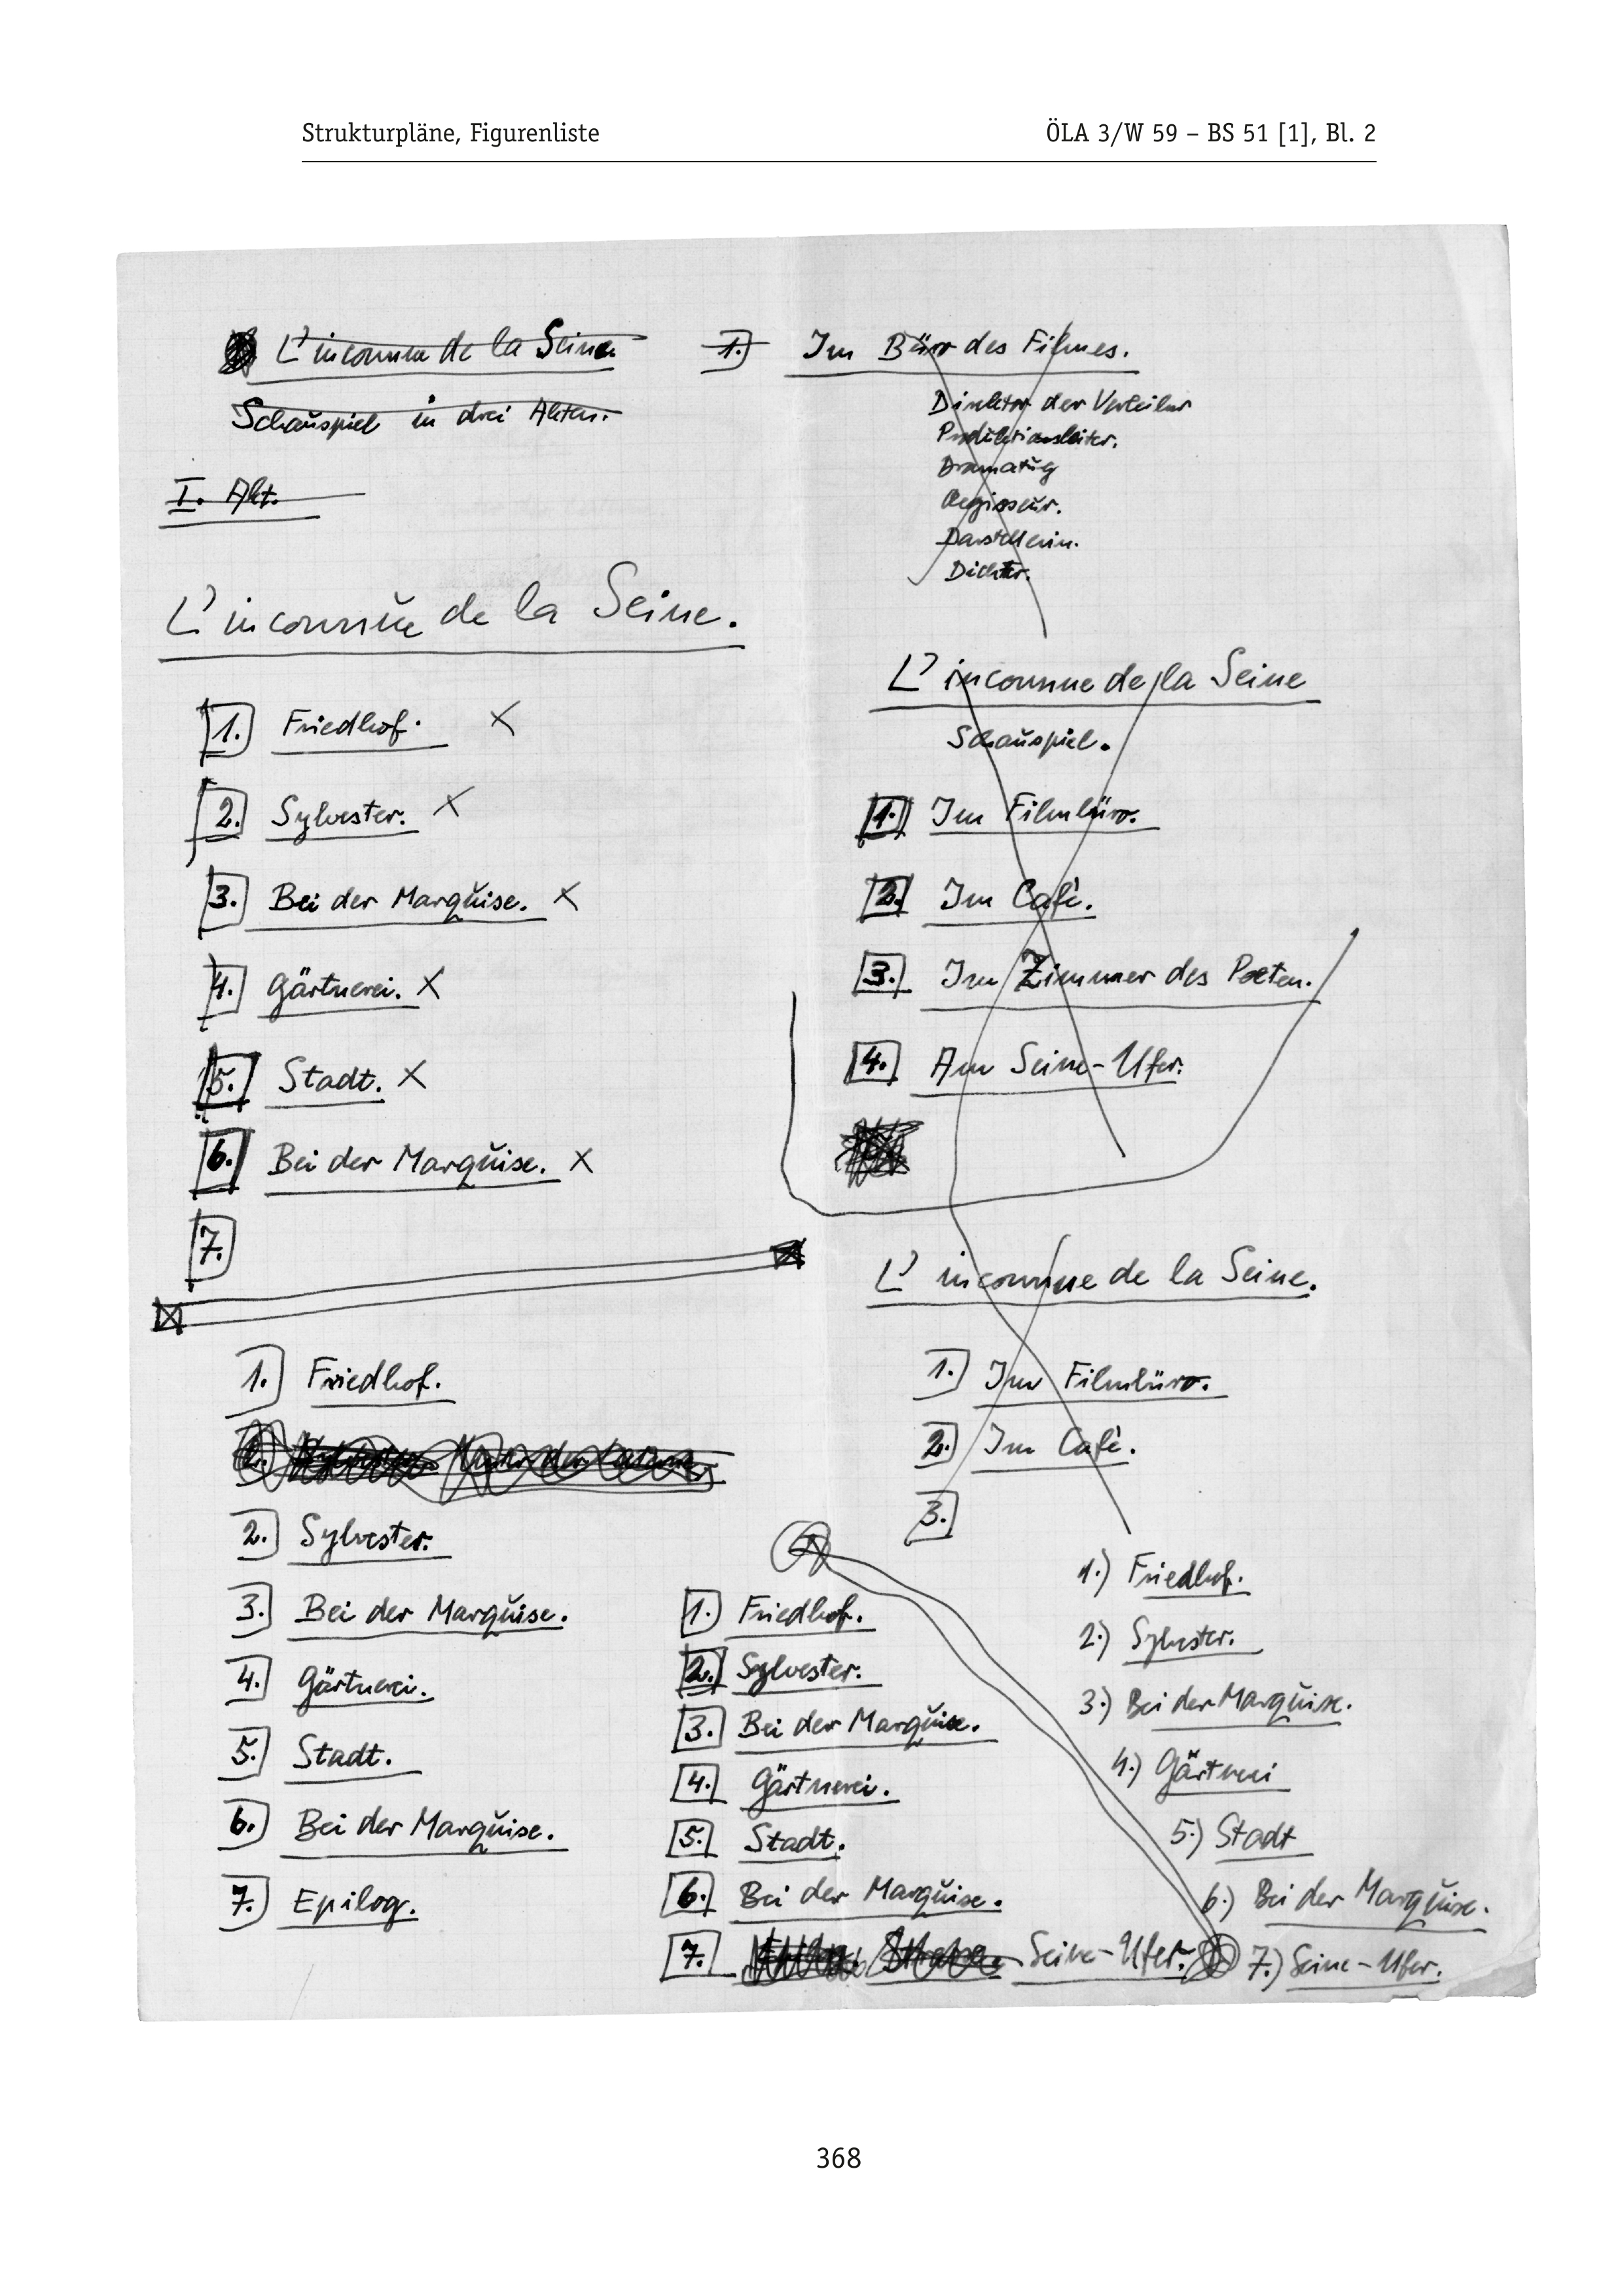 Strukturpläne, Figurenliste
ÖLA 3/W 59 – BS 51 [1], Bl. 2
L'inconnue de la Seine.
Schauspiel in drei Akten.
I. Akt.
L'inconnue de la Seine.
1. Friedhof.
2. Sylvester.
3. Bei der Marquise.
4. Gärtnerei.
5. Stadt.
6. Bei der Marquise.
7.
1. Friedhof.
2. Sylvester.
3. Bei der Marquise.
4. Gärtnerei.
5. Stadt.
6. Bei der Marquise.
7. Epilog.
1.) Im Büro des Filmes.
Direktor der Verleiher
Produktionsleiter.
Dramatug
Regisseur.
Darstellerin.
Dichter.
L'inconnue de la Seine
Schauspiel.
1. Im Filmbüro.
2. Im Café.
3. Im Zimmer des Poeten.
4. Am Seine-Ufer.
L'inconnue de la Seine.
1. Im Filmbüro.
2. Im Café.
3.
1. Friedhof.
2. Sylvester.
3. Bei der Marquise.
4. Gärtnerei.
5. Stadt.
6. Bei der Marquise.
7. Strasse. Seine-Ufer.
1.) Friedhof.
2.) Sylvester.
3.) Bei der Marquise.
4.) Gärtnerei
5.) Stadt
6.) Bei der Marquise.
7.) Seine-Ufer.
368